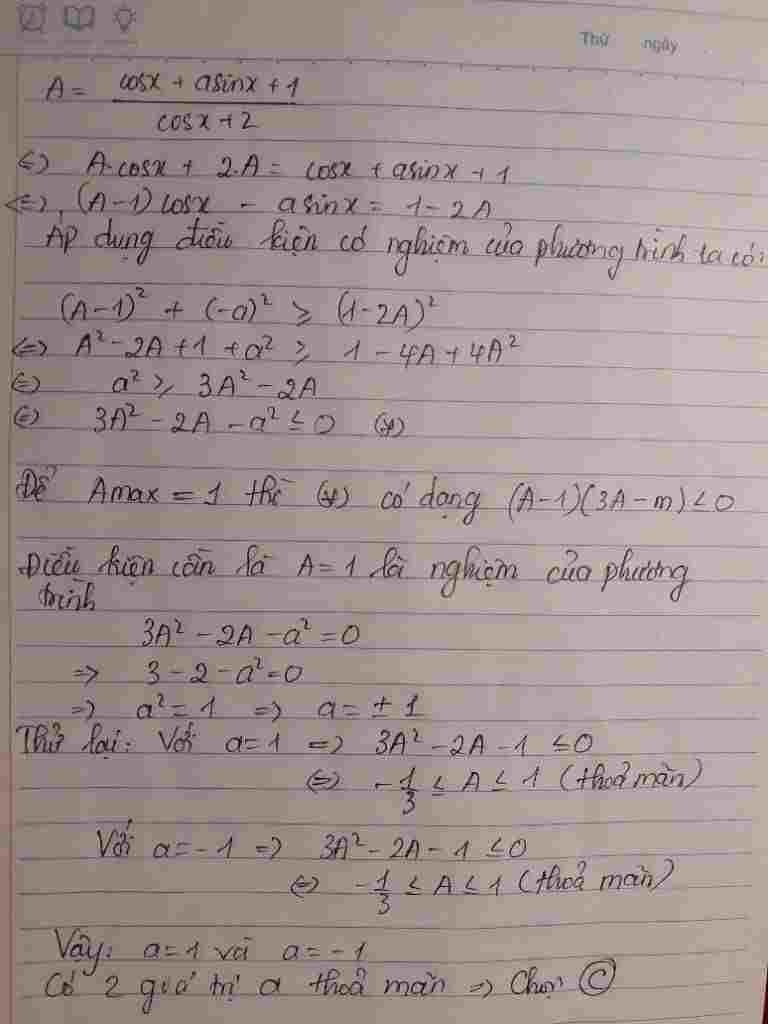 Thứ ngày
A = (cosx + asinx + 1) / (cosx + 2)
⇔ A.cosx + 2.A = cosx + asinx + 1
⇔ (A-1)cosx - asinx = 1-2A
Áp dụng điều kiện có nghiệm của phương trình ta có:
(A-1)² + (-a)² ≥ (1-2A)²
⇔ A² - 2A + 1 + a² ≥ 1 - 4A + 4A²
⇔ a² ≥ 3A² - 2A
⇔ 3A² - 2A - a² ≤ 0 (*)
Để Amax = 1 thì (*) có dạng (A-1)(3A-m) < 0
Điều kiện cần là A = 1 là nghiệm của phương
trình
3A² - 2A - a² = 0
⇒ 3 - 2 - a² = 0
⇒ a² = 1 ⇒ a = ± 1
Thử lại: Với a = 1 ⇒ 3A² - 2A - 1 ≤ 0
⇔ -1/3 ≤ A ≤ 1 (thoả mãn)
Với a = -1 ⇒ 3A² - 2A - 1 ≤ 0
⇔ -1/3 ≤ A ≤ 1 (thoả mãn)
Vậy: a = 1 và a = -1
Có 2 giá trị a thoả mãn ⇒ Chọn C